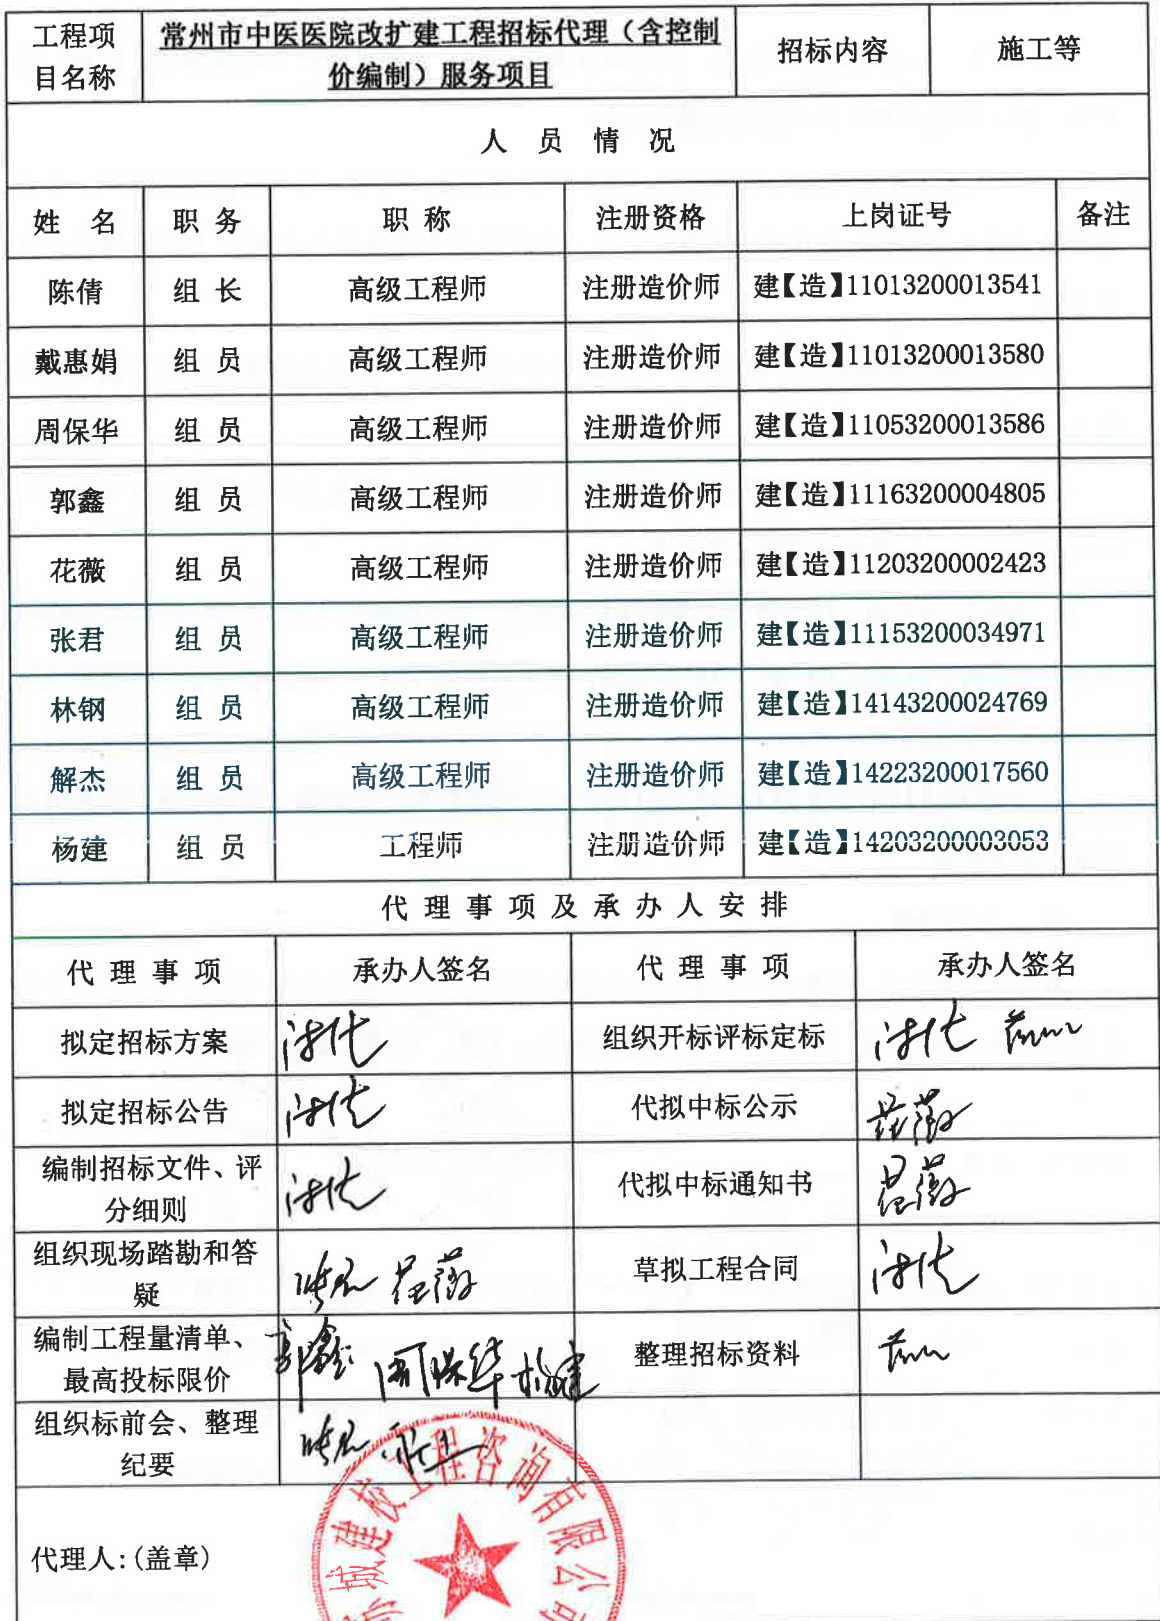 工程项目名称 常州市中医医院改扩建工程招标代理（含控制价编制）服务项目 招标内容 施工等
人 员 情 况
姓 名 职 务 职 称 注册资格 上岗证号 备注
陈倩 组 长 高级工程师 注册造价师 建【造】11013200013541
戴惠娟 组 员 高级工程师 注册造价师 建【造】11013200013580
周保华 组 员 高级工程师 注册造价师 建【造】11053200013586
郭鑫 组 员 高级工程师 注册造价师 建【造】11163200004805
花薇 组 员 高级工程师 注册造价师 建【造】11203200002423
张君 组 员 高级工程师 注册造价师 建【造】11153200034971
林钢 组 员 高级工程师 注册造价师 建【造】14143200024769
解杰 组 员 高级工程师 注册造价师 建【造】14223200017560
杨建 组 员 工程师 注册造价师 建【造】14203200003053
代 理 事 项 及 承 办 人 安 排
代 理 事 项 承办人签名 代 理 事 项 承办人签名
拟定招标方案 陈倩 组织开标评标定标 陈倩
拟定招标公告 陈倩 代拟中标公示 花薇
编制招标文件、评分细则 陈倩 代拟中标通知书 花薇
组织现场踏勘和答疑 张君 花薇 草拟工程合同 陈倩
编制工程量清单、最高投标限价 郭鑫 周保华 杨建 整理招标资料
组织标前会、整理纪要 张君
代理人：（盖章）
城建校工程咨询有限公司